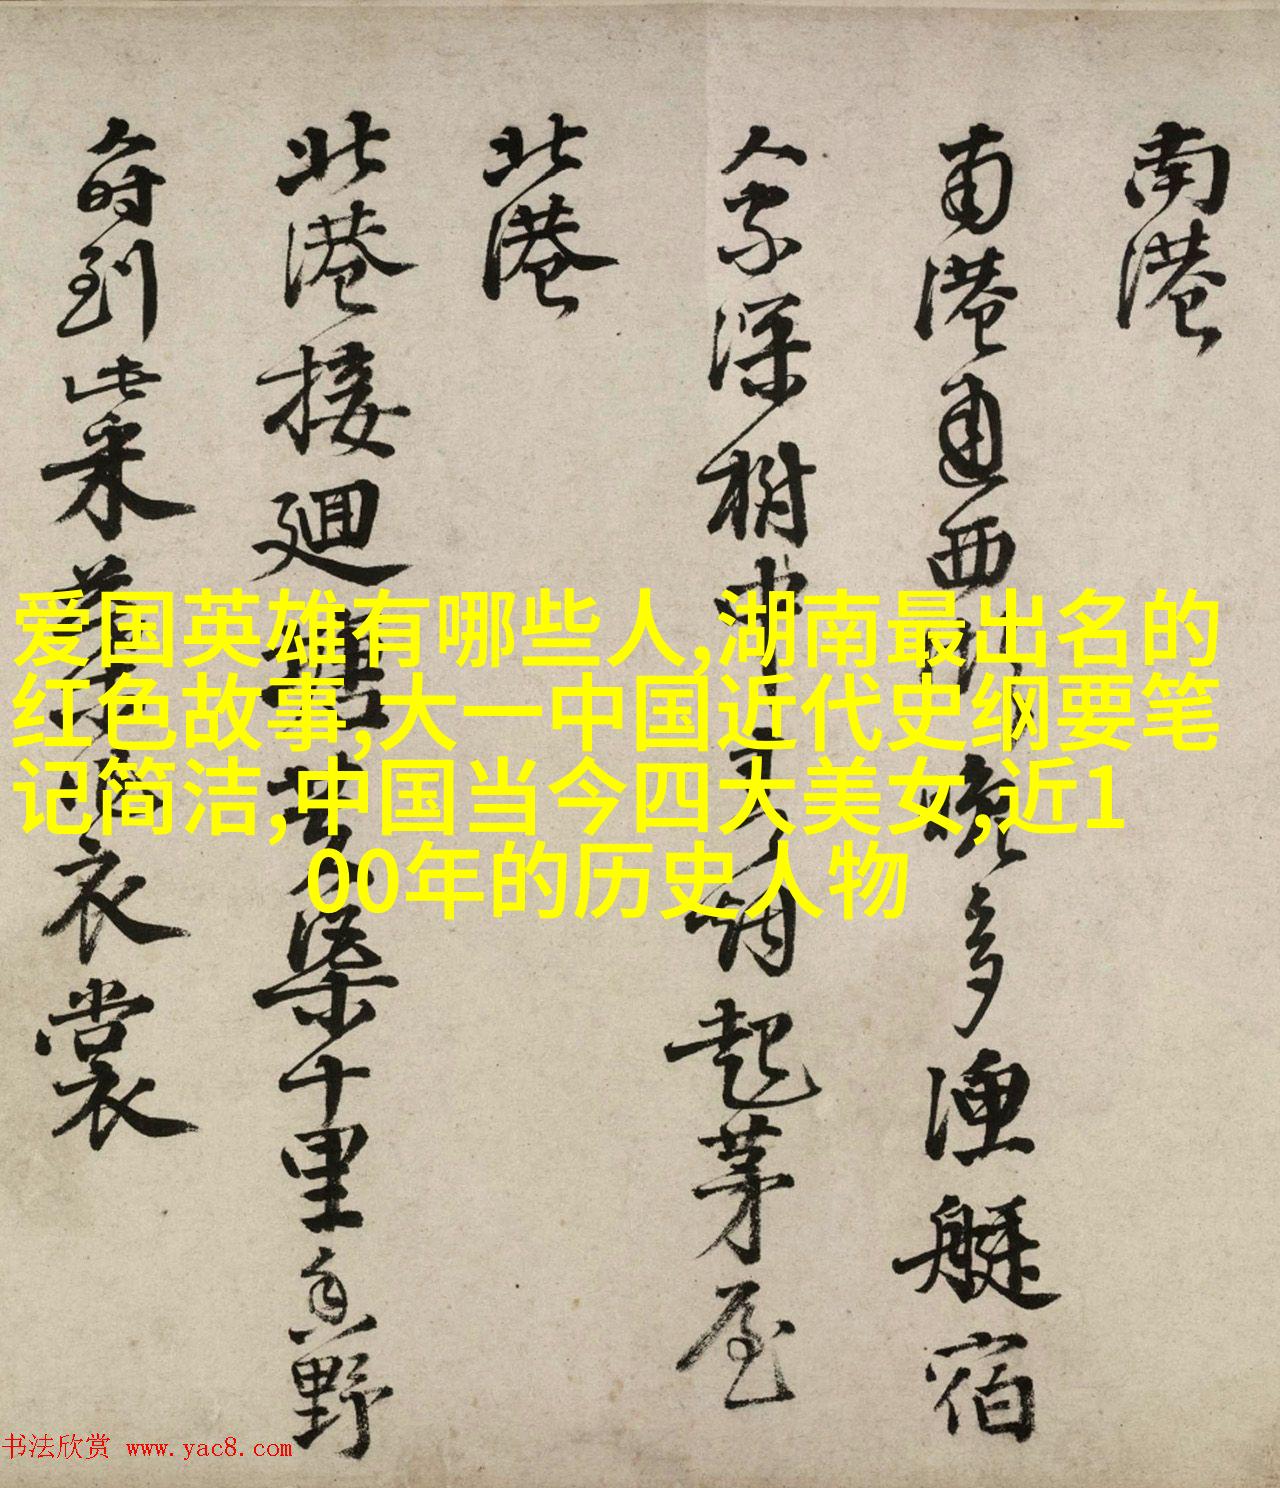 南港
南港通西晚多漁艇宿
人家深樹中烟起茅屋
北港
北港接廻塘芙蕖十里香野
人時到此采衣裳
爱国英雄有哪些人,湖南最出名的
红色故事,大一中国近代史纲要笔
记简洁,中国当今四大美女,近1
00年的历史人物
书法欣赏 www.yac8.com